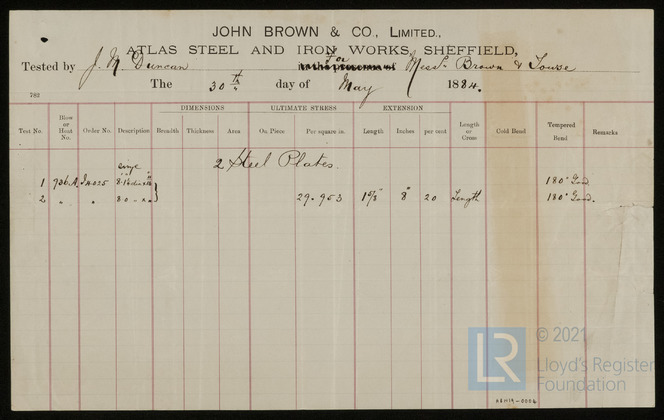 JOHN BROWN & CO., LIMITED.,
ATLAS STEEL AND IRON WORKS, SHEFFIELD,
Tested by J. N. Duncan For Messrs Brown & Towse
The 30th day of May 1884.
782
DIMENSIONS ULTIMATE STRESS EXTENSION
Test No. Blow or Heat No. Order No. Description Breadth Thickness Area On Piece Per square in. Length Inches per cent Length or Cross Cold Bend Tempered Bend Remarks
2 Steel Plates.
1 736.A. 180° Good
2 " " 8.0 29.953 8" 20 Length 180° Good.
© 2021
LR Lloyd's Register
Foundation